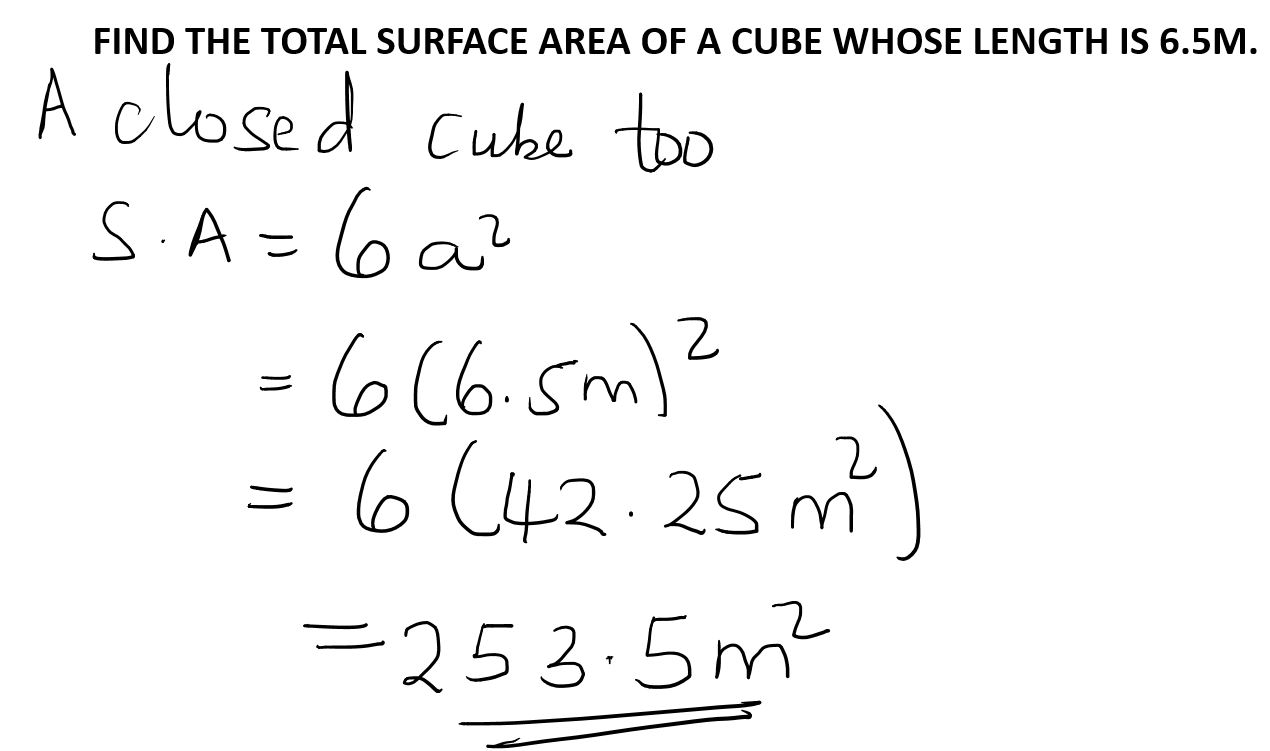 FIND THE TOTAL SURFACE AREA OF A CUBE WHOSE LENGTH IS 6.5M.
A closed cube too
S.A = 6a²
= 6(6.5m)²
= 6(42.25m²)
= 253.5m²